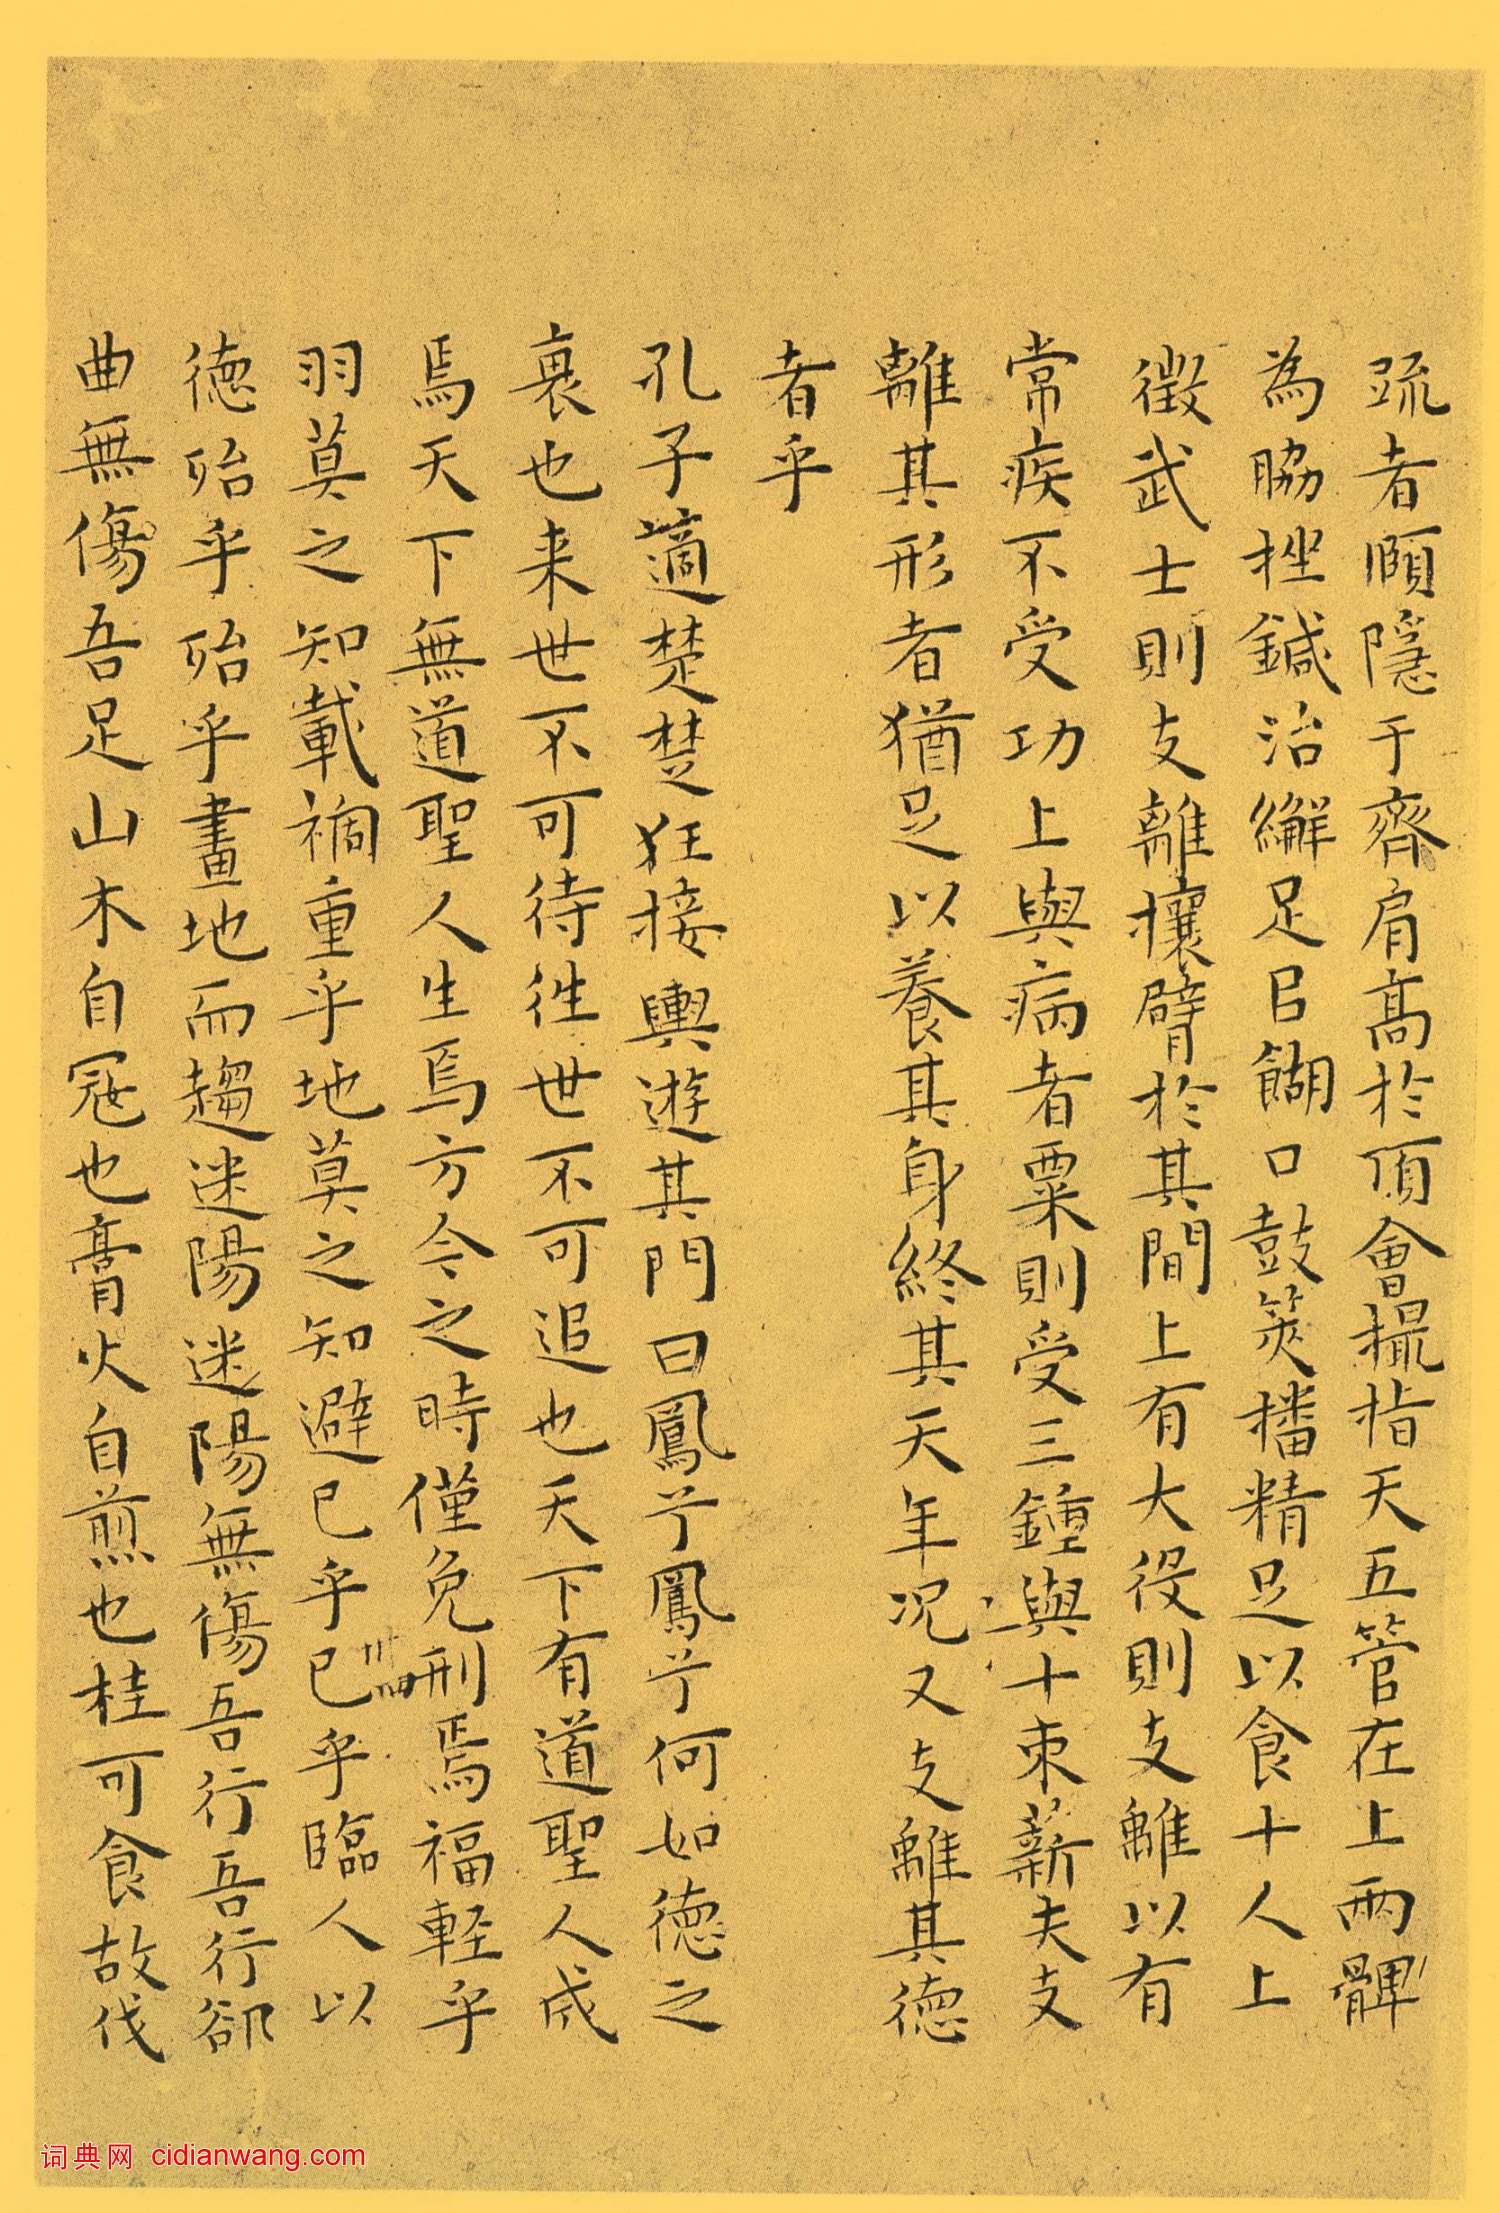 疏者頤隱于齊肩高於頂會撮指天五管在上兩髀
為脇挫鍼治繲足㠯餬口鼓筴播精足以食十人上
徵武士則支離攘臂於其間上有大役則支離以有
常疾不受功上與病者粟則受三鍾與十束薪夫支
離其形者猶足以養其身終其天年況又支離其德
者乎
孔子適楚楚狂接輿遊其門曰鳳兮鳳兮何如德之
衰也来世不可待往世不可追也天下有道聖人成
焉天下無道聖人生焉方今之時僅免刑焉福輕乎
羽莫之知載禍重乎地莫之知避已乎已乎臨人以
德殆乎殆乎畫地而趨迷陽迷陽無傷吾行吾行卻
曲無傷吾足山木自寇也膏火自煎也桂可食故伐
词典网 cidianwang.com